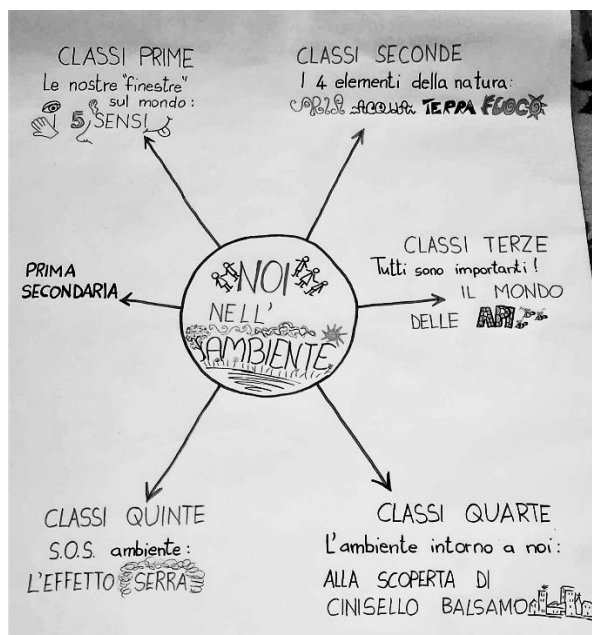 CLASSI PRIME
Le nostre "finestre"
sul mondo:
5 SENSI
CLASSI SECONDE
I 4 elementi della natura:
ARIA ACQUA TERRA FUOCO
CLASSI TERZE
Tutti sono importanti!
IL MONDO
DELLE API
PRIMA
SECONDARIA
NOI
NELL'
AMBIENTE
CLASSI QUINTE
S.O.S. ambiente:
L'EFFETTO SERRA
CLASSI QUARTE
L'ambiente intorno a noi:
ALLA SCOPERTA DI
CINISELLO BALSAMO